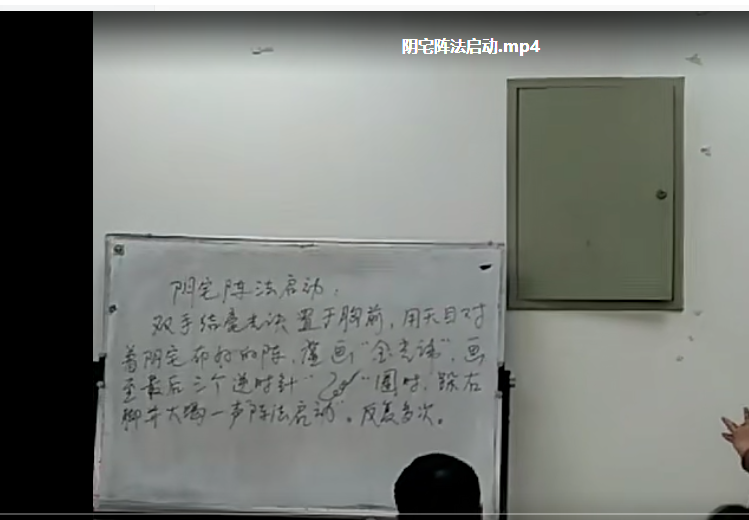 阴宅阵法启动.mp4
阴宅阵法启动：
双手结 诀置于胸前，用天目对
着阴宅布好的阵，虚画“金光 ”，画
至最后三个逆时针“ ”圈时，跺右
脚并大喝一声“阵法启动”。反复多次。